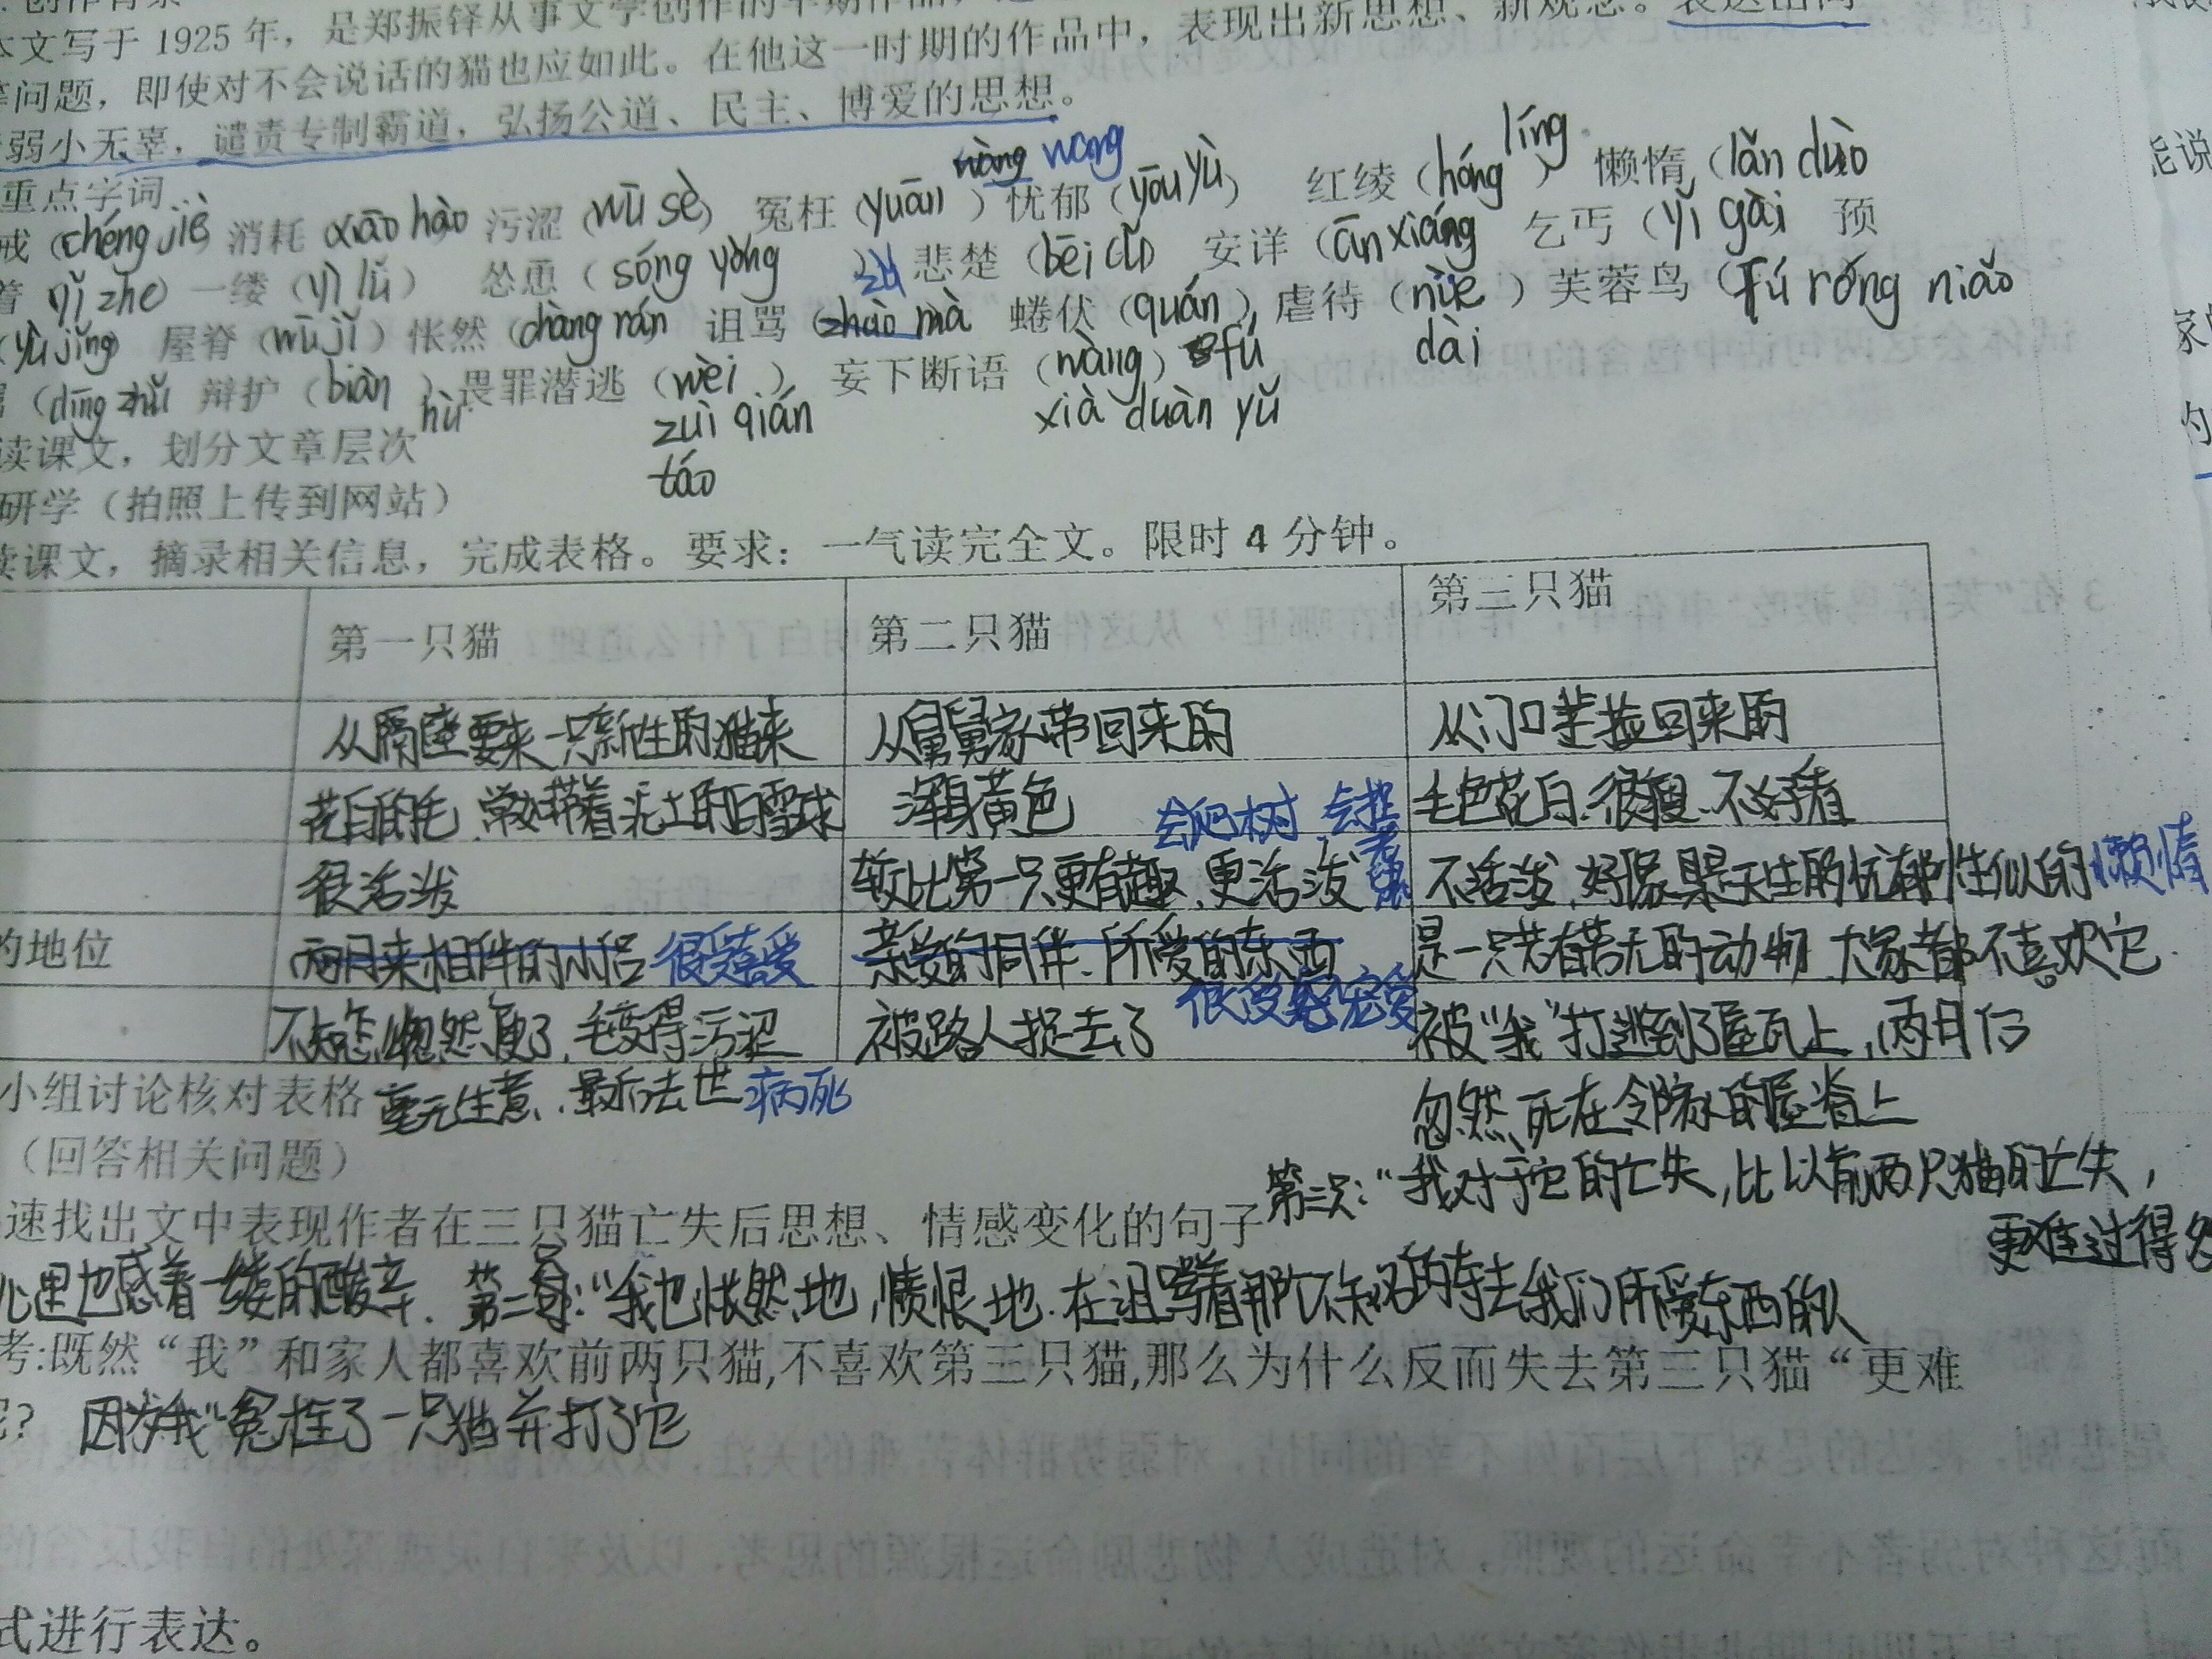 创作背景
本文写于 1925 年，是郑振铎从事文学创作的早期作品，
等问题，即使对不会说话的猫也应如此。在他这一时期的作品中，表现出新思想、新观念。表达出同
弱小无辜，谴责专制霸道，弘扬公道、民主、博爱的思想。
重点字词
戒（chéng jiè 消耗 xiāo hào 污涩（wū sè） 冤枉（yuān wàng wang）忧郁（yōu yù） 红绫（hóng líng） 懒惰（lǎn duò
着 yǐ zhe） 一缕（yì lǚ） 怂恿（sóng yǒng ） 悲楚（bēi chǔ） 安详（ān xiáng 乞丐（yǐ gài 预
（yù jǐng） 屋脊（wū jǐ）怅然（chàng rán） 诅骂（zhào mà zǔ 蜷伏（quán fú），虐待（nüè dài）芙蓉鸟（fú róng niǎo
（dīng zhǔ 辩护（biàn hù）畏罪潜逃（wèi zuì qián táo） 妄下断语（wàng xià duàn yǔ）
读课文，划分文章层次
研学（拍照上传到网站）
读课文，摘录相关信息，完成表格。要求：一气读完全文。限时 4 分钟。
第一只猫 第二只猫 第三只猫
从隔壁要来一只新生的猫来 从舅舅家带回来的 从门口捡回来的
花白的毛，常如带着泥土的白雪球 浑身黄色 会爬树 会捉老鼠 毛色花白、很瘦、不好看
很活泼 较比第一只更有趣、更活泼 不活泼，好像是天生的忧郁性似的 懒惰
的地位 两月来相伴的小侣 很喜爱 亲爱的同伴、所爱的东西 很受宠爱 是一只若有若无的动物 大家都不喜欢它。
不知怎忽然瘦了，毛变得污涩 毫无生意、最后去世 病死 被路人捉去了 被“我”打逃到了屋瓦上，两月后忽然死在邻家的屋脊上
小组讨论核对表格
（回答相关问题）
速找出文中表现作者在三只猫亡失后思想、情感变化的句子 第三只：“我对于它的亡失，比以前两只猫的亡失，更难过得多
心里也感着一缕的酸辛. 第二只：“我也怅然地，愤恨地. 在诅骂着那个不知名的夺去我们所爱东西的人
考:既然“我”和家人都喜欢前两只猫,不喜欢第三只猫,那么为什么反而失去第三只猫“更难
呢？ 因为“我”冤枉了一只猫并打了它
式进行表达。